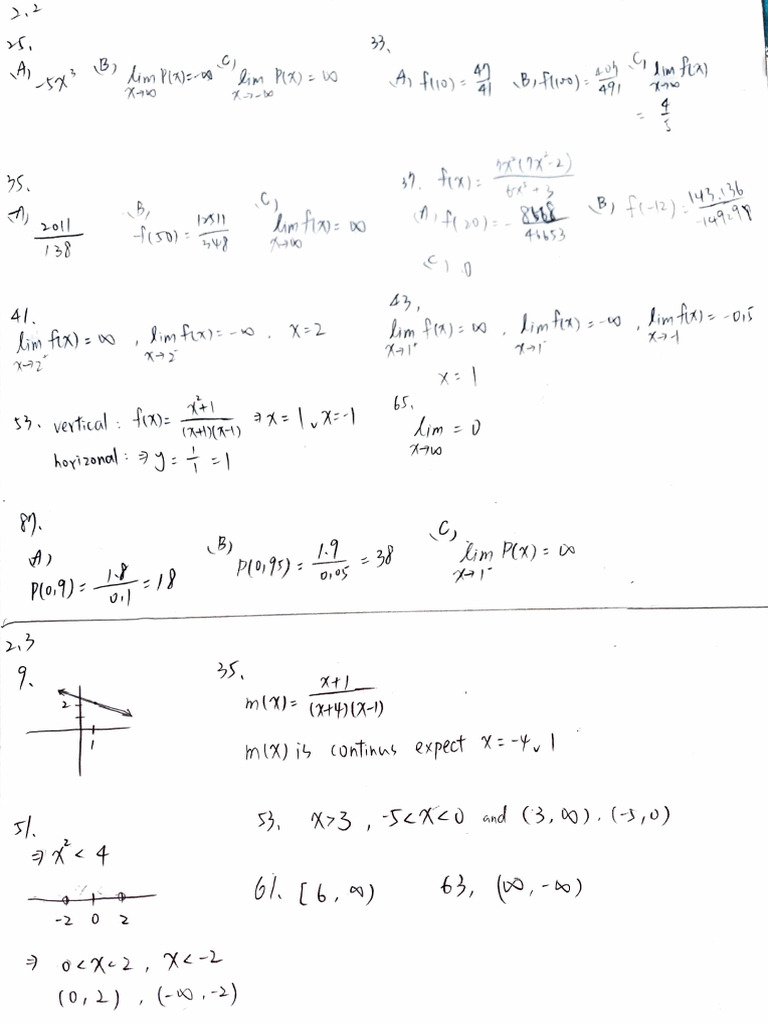 2.2
25.
A) -5x³ B) lim x→∞ P(x)=-∞ C) lim x→-∞ P(x)=∞
33.
A, f(10)=47/41 B, f(100)=407/491 C, lim x→∞ f(x) = 4/5
35.
A) 2011/138 B, f(50)=12511/348 C, lim x→∞ f(x)=∞
37. f(x)=
A, f(20)=- /46653 B) f(-12)=143.136/-149.98
C) 0
41.
lim x→2⁻ f(x)=∞, lim x→2 f(x)=-∞. x=2
43,
lim x→1⁺ f(x)=∞, lim x→1⁻ f(x)=-∞, lim x→-1 f(x)=-0,5
x=1
53. vertical: f(x)=x²+1/(x+1)(x-1) ⇒ x=1, x=-1
horizonal: ⇒ y=1/1=1
65.
lim x→∞ = 0
87.
A)
P(0,9)=1.8/0,1=18
B)
P(0,95)=1.9/0,05=38
C)
lim x→1⁻ P(x)=∞
2,3
9.
2
1
35.
m(x)=x+1/(x+4)(x-1)
m(x) is continus expect x=-4, 1
51.
⇒ x²<4
-2 0 2
⇒ 0<x<2, x<-2
(0,2), (-∞,-2)
53. x>3, -5<x<0 and (3,∞), (-5,0)
61. [6,∞)
63, (∞,-∞)